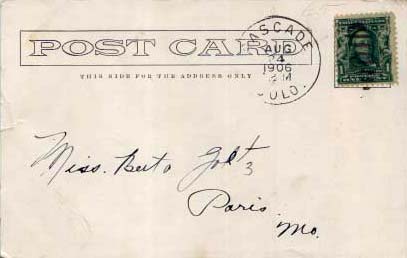 POST CARD
THIS SIDE FOR THE ADDRESS ONLY
CASCADE
AUG
24
1906
M
COLO.
Miss. Berto Foltz
Paris
Mo.